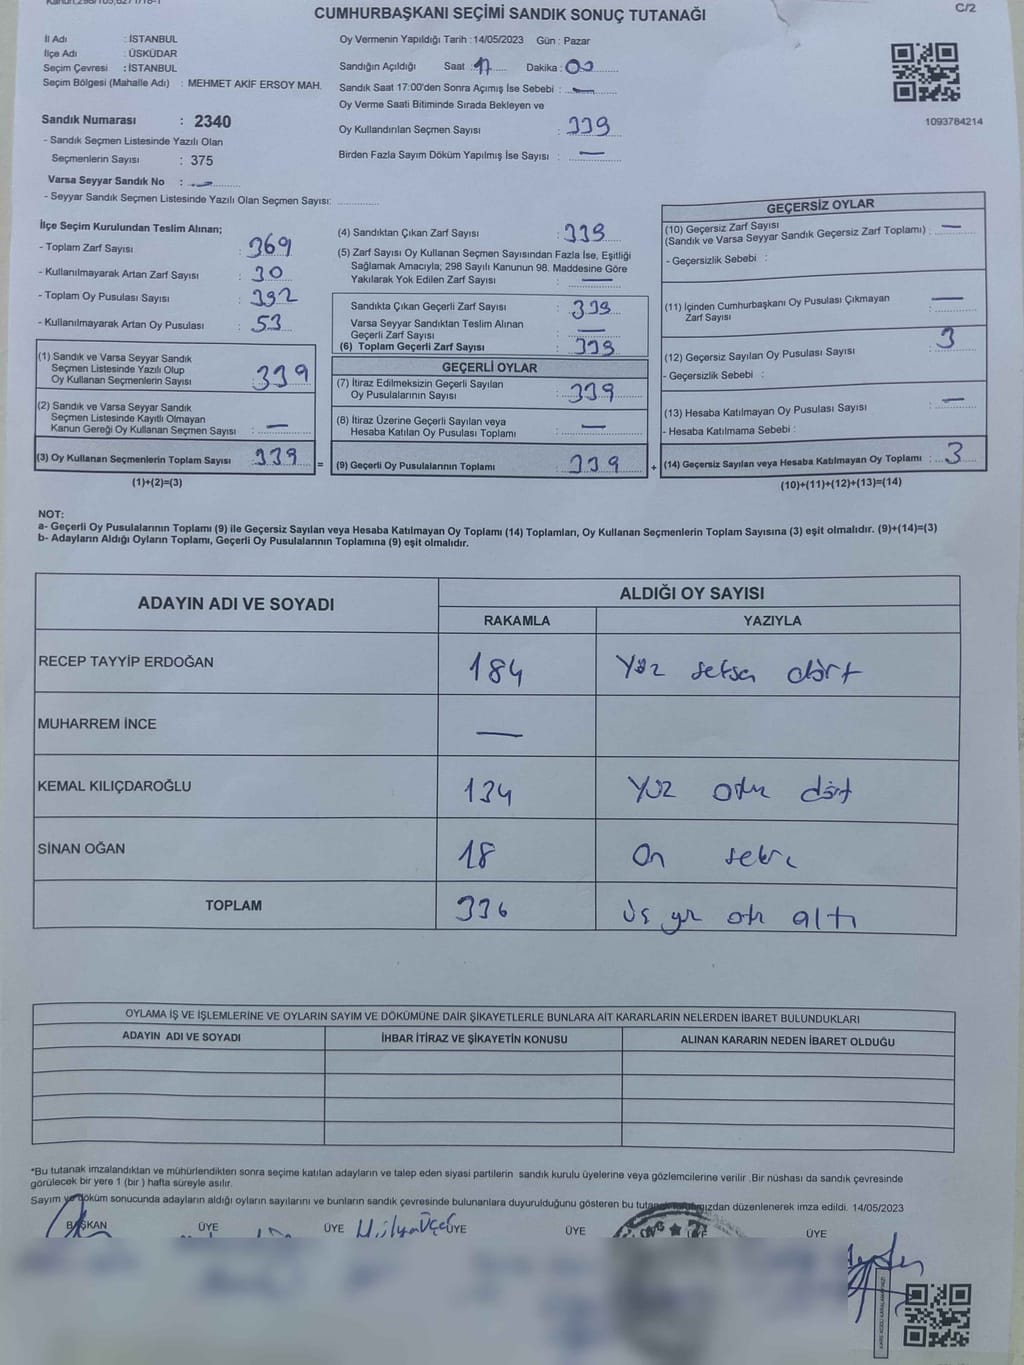 CUMHURBAŞKANI SEÇİMİ SANDIK SONUÇ TUTANAĞI
C/2
İl Adı : İSTANBUL
İlçe Adı : ÜSKÜDAR
Seçim Çevresi : İSTANBUL
Seçim Bölgesi (Mahalle Adı) : MEHMET AKİF ERSOY MAH.
Sandık Numarası : 2340
- Sandık Seçmen Listesinde Yazılı Olan
Seçmenlerin Sayısı : 375
Varsa Seyyar Sandık No : —
- Seyyar Sandık Seçmen Listesinde Yazılı Olan Seçmen Sayısı:
Oy Vermenin Yapıldığı Tarih : 14/05/2023 Gün : Pazar
Sandığın Açıldığı Saat : 17 Dakika : 00
Sandık Saat 17:00'den Sonra Açımış İse Sebebi : —
Oy Verme Saati Bitiminde Sırada Bekleyen ve
Oy Kullandırılan Seçmen Sayısı : 339
Birden Fazla Sayım Döküm Yapılmış İse Sayısı : —
1093784214
İlçe Seçim Kurulundan Teslim Alınan;
- Toplam Zarf Sayısı : 369
- Kullanılmayarak Artan Zarf Sayısı : 30
- Toplam Oy Pusulası Sayısı : 392
- Kullanılmayarak Artan Oy Pusulası : 53
(1) Sandık ve Varsa Seyyar Sandık
Seçmen Listesinde Yazılı Olup
Oy Kullanan Seçmenlerin Sayısı : 339
(2) Sandık ve Varsa Seyyar Sandık
Seçmen Listesinde Kayıtlı Olmayan
Kanun Gereği Oy Kullanan Seçmen Sayısı : —
(3) Oy Kullanan Seçmenlerin Toplam Sayısı : 339 =
(1)+(2)=(3)
(4) Sandıktan Çıkan Zarf Sayısı : 339
(5) Zarf Sayısı Oy Kullanan Seçmen Sayısından Fazla İse, Eşitliği
Sağlamak Amacıyla; 298 Sayılı Kanunun 98. Maddesine Göre
Yakılarak Yok Edilen Zarf Sayısı : —
Sandıkta Çıkan Geçerli Zarf Sayısı : 339
Varsa Seyyar Sandıktan Teslim Alınan
Geçerli Zarf Sayısı : —
(6) Toplam Geçerli Zarf Sayısı : 339
GEÇERLİ OYLAR
(7) İtiraz Edilmeksizin Geçerli Sayılan
Oy Pusulalarının Sayısı : 339
(8) İtiraz Üzerine Geçerli Sayılan veya
Hesaba Katılan Oy Pusulası Toplamı : —
(9) Geçerli Oy Pusulalarının Toplamı : 339 +
GEÇERSİZ OYLAR
(10) Geçersiz Zarf Sayısı
(Sandık ve Varsa Seyyar Sandık Geçersiz Zarf Toplamı) : —
- Geçersizlik Sebebi :
(11) İçinden Cumhurbaşkanı Oy Pusulası Çıkmayan
Zarf Sayısı : —
(12) Geçersiz Sayılan Oy Pusulası Sayısı : 3
- Geçersizlik Sebebi :
(13) Hesaba Katılmayan Oy Pusulası Sayısı : —
- Hesaba Katılmama Sebebi :
(14) Geçersiz Sayılan veya Hesaba Katılmayan Oy Toplamı : 3
(10)+(11)+(12)+(13)=(14)
NOT:
a- Geçerli Oy Pusulalarının Toplamı (9) ile Geçersiz Sayılan veya Hesaba Katılmayan Oy Toplamı (14) Toplamları, Oy Kullanan Seçmenlerin Toplam Sayısına (3) eşit olmalıdır. (9)+(14)=(3)
b- Adayların Aldığı Oyların Toplamı, Geçerli Oy Pusulalarının Toplamına (9) eşit olmalıdır.
ADAYIN ADI VE SOYADI
ALDIĞI OY SAYISI
RAKAMLA YAZIYLA
RECEP TAYYİP ERDOĞAN 184 Yüz seksen dört
MUHARREM İNCE —
KEMAL KILIÇDAROĞLU 134 Yüz otuz dört
SİNAN OĞAN 18 On sekiz
TOPLAM 336 üç yüz otuz altı
OYLAMA İŞ VE İŞLEMLERİNE VE OYLARIN SAYIM VE DÖKÜMÜNE DAİR ŞİKAYETLERLE BUNLARA AİT KARARLARIN NELERDEN İBARET BULUNDUKLARI
ADAYIN ADI VE SOYADI İHBAR İTİRAZ VE ŞİKAYETİN KONUSU ALINAN KARARIN NEDEN İBARET OLDUĞU
*Bu tutanak imzalandıktan ve mühürlendikten sonra seçime katılan adayların ve talep eden siyasi partilerin sandık kurulu üyelerine veya gözlemcilerine verilir .Bir nüshası da sandık çevresinde
görülecek bir yere 1 (bir ) hafta süreyle asılır.
Sayım ve döküm sonucunda adayların aldığı oyların sayılarını ve bunların sandık çevresinde bulunanlara duyurulduğunu gösteren bu tutanak tarafımızdan düzenlenerek imza edildi. 14/05/2023
BAŞKAN ÜYE ÜYE ÜYE ÜYE ÜYE ÜYE